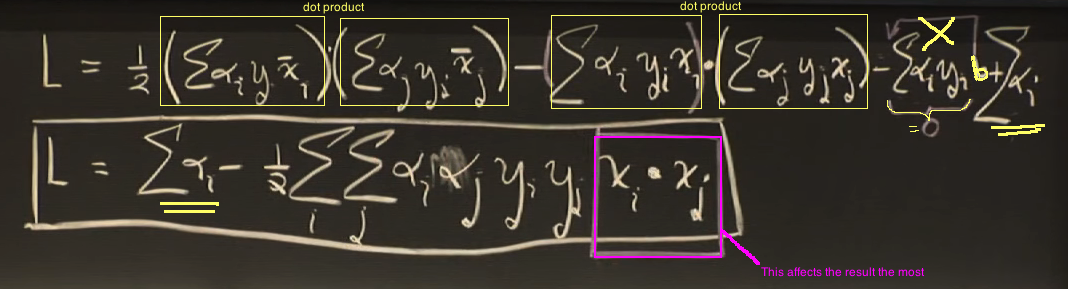 dot product dot product
L = ½ (∑ αᵢ yᵢ x̄ᵢ) · (∑ αⱼ yⱼ x̄ⱼ) − (∑ αᵢ yᵢ xᵢ) · (∑ αⱼ yⱼ xⱼ) − ∑ αᵢ yᵢ b + ∑ αᵢ
= 0
L = ∑ αᵢ − ½ ∑ ∑ αᵢ αⱼ yᵢ yⱼ xᵢ · xⱼ
i j
This affects the result the most